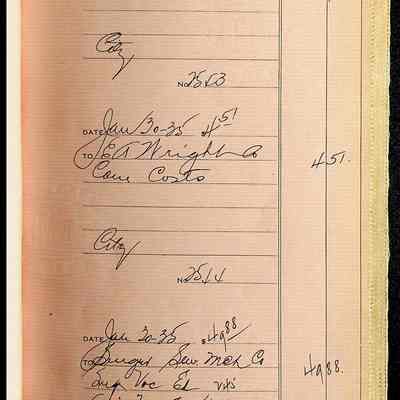 City
No 2513
DATE Jan 30-35 4 51
TO E A Wright Co 4 51.
Costs
City
No 2514
DATE Jan 30-35 $49 88
TO Singer Sew Mch Co 49 88
Voc Ed